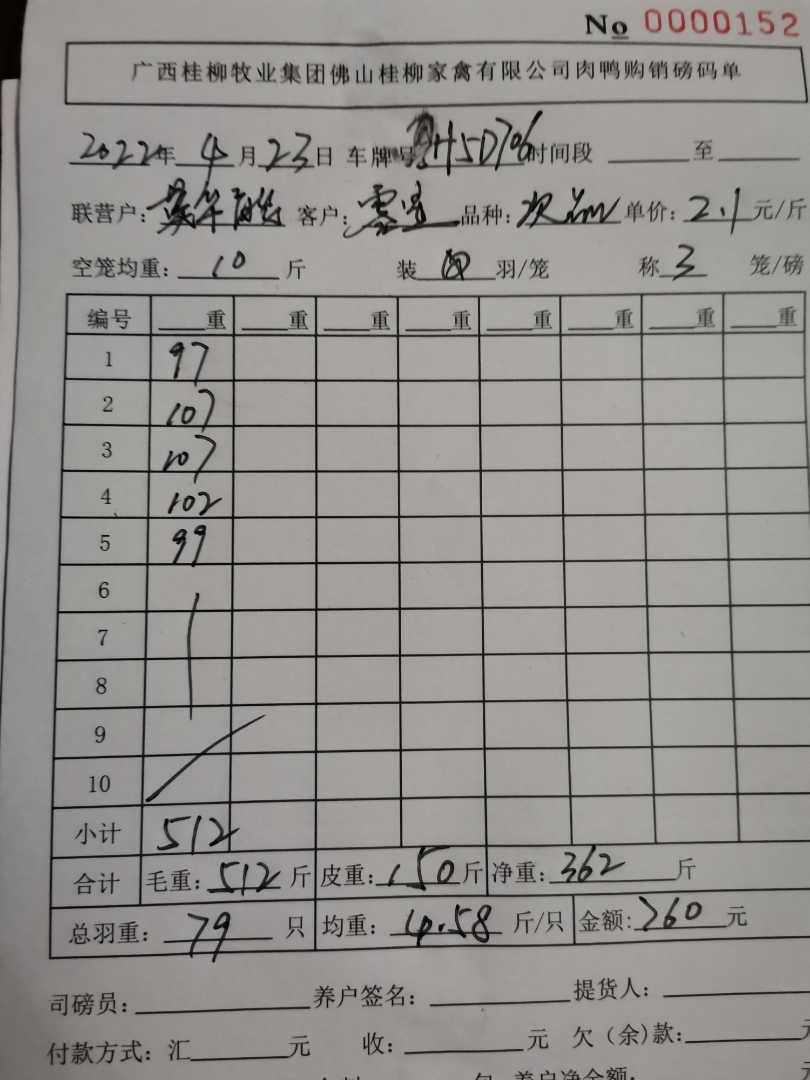 No 0000152
广西桂柳牧业集团佛山桂柳家禽有限公司肉鸭购销磅码单
2022年 4 月 23 日 车牌号 H5D706 时间段 至
联营户: 客户: 零售 品种: 次品 单价: 2.1 元/斤
空笼均重: 10 斤 装 羽/笼 称 3 笼/磅
编号 重 重 重 重 重 重 重 重
1 97
2 107
3 107
4 102
5 99
6
7
8
9
10
小计 512
合计 毛重: 512 斤 皮重: 150 斤 净重: 362 斤
总羽重: 79 只 均重: 4.58 斤/只 金额: 760 元
司磅员: 养户签名: 提货人:
付款方式: 汇 元 收: 元 欠（余)款: